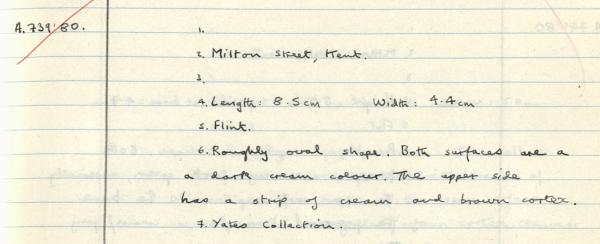 A.739'80.
1.
2. Milton Street, Kent.
3.
4. Length: 8.5cm Width: 4.4cm
5. Flint.
6. Roughly oval shape. Both surfaces are a
a dark cream colour. The upper side
has a strip of cream and brown cortex.
7. Yates Collection.